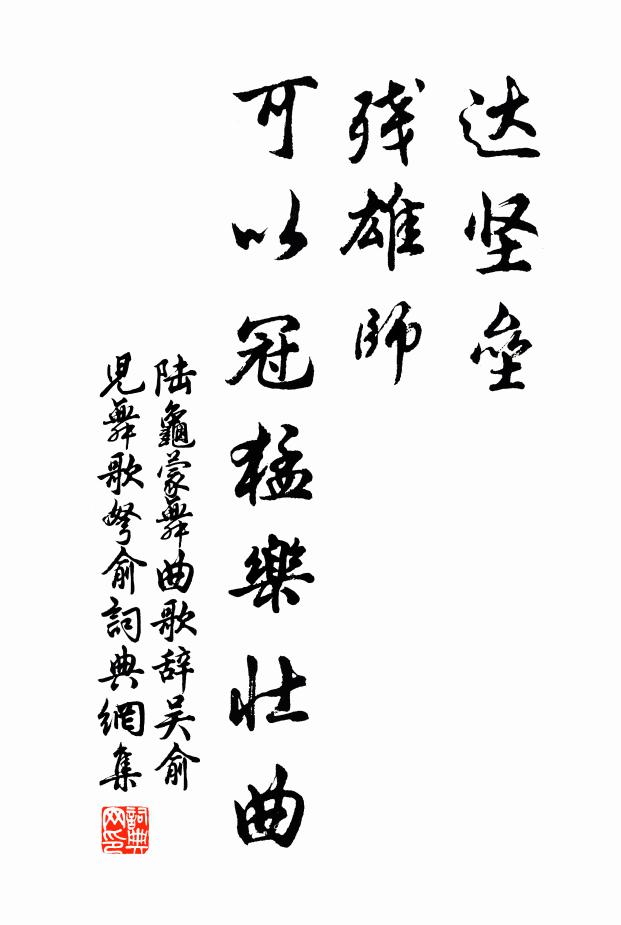 达坚垒
残雄师
可以冠猛樂壮曲
陆龜蒙舞曲歌辞吴俞
児舞歌弩俞詞典網集
詞典
网印